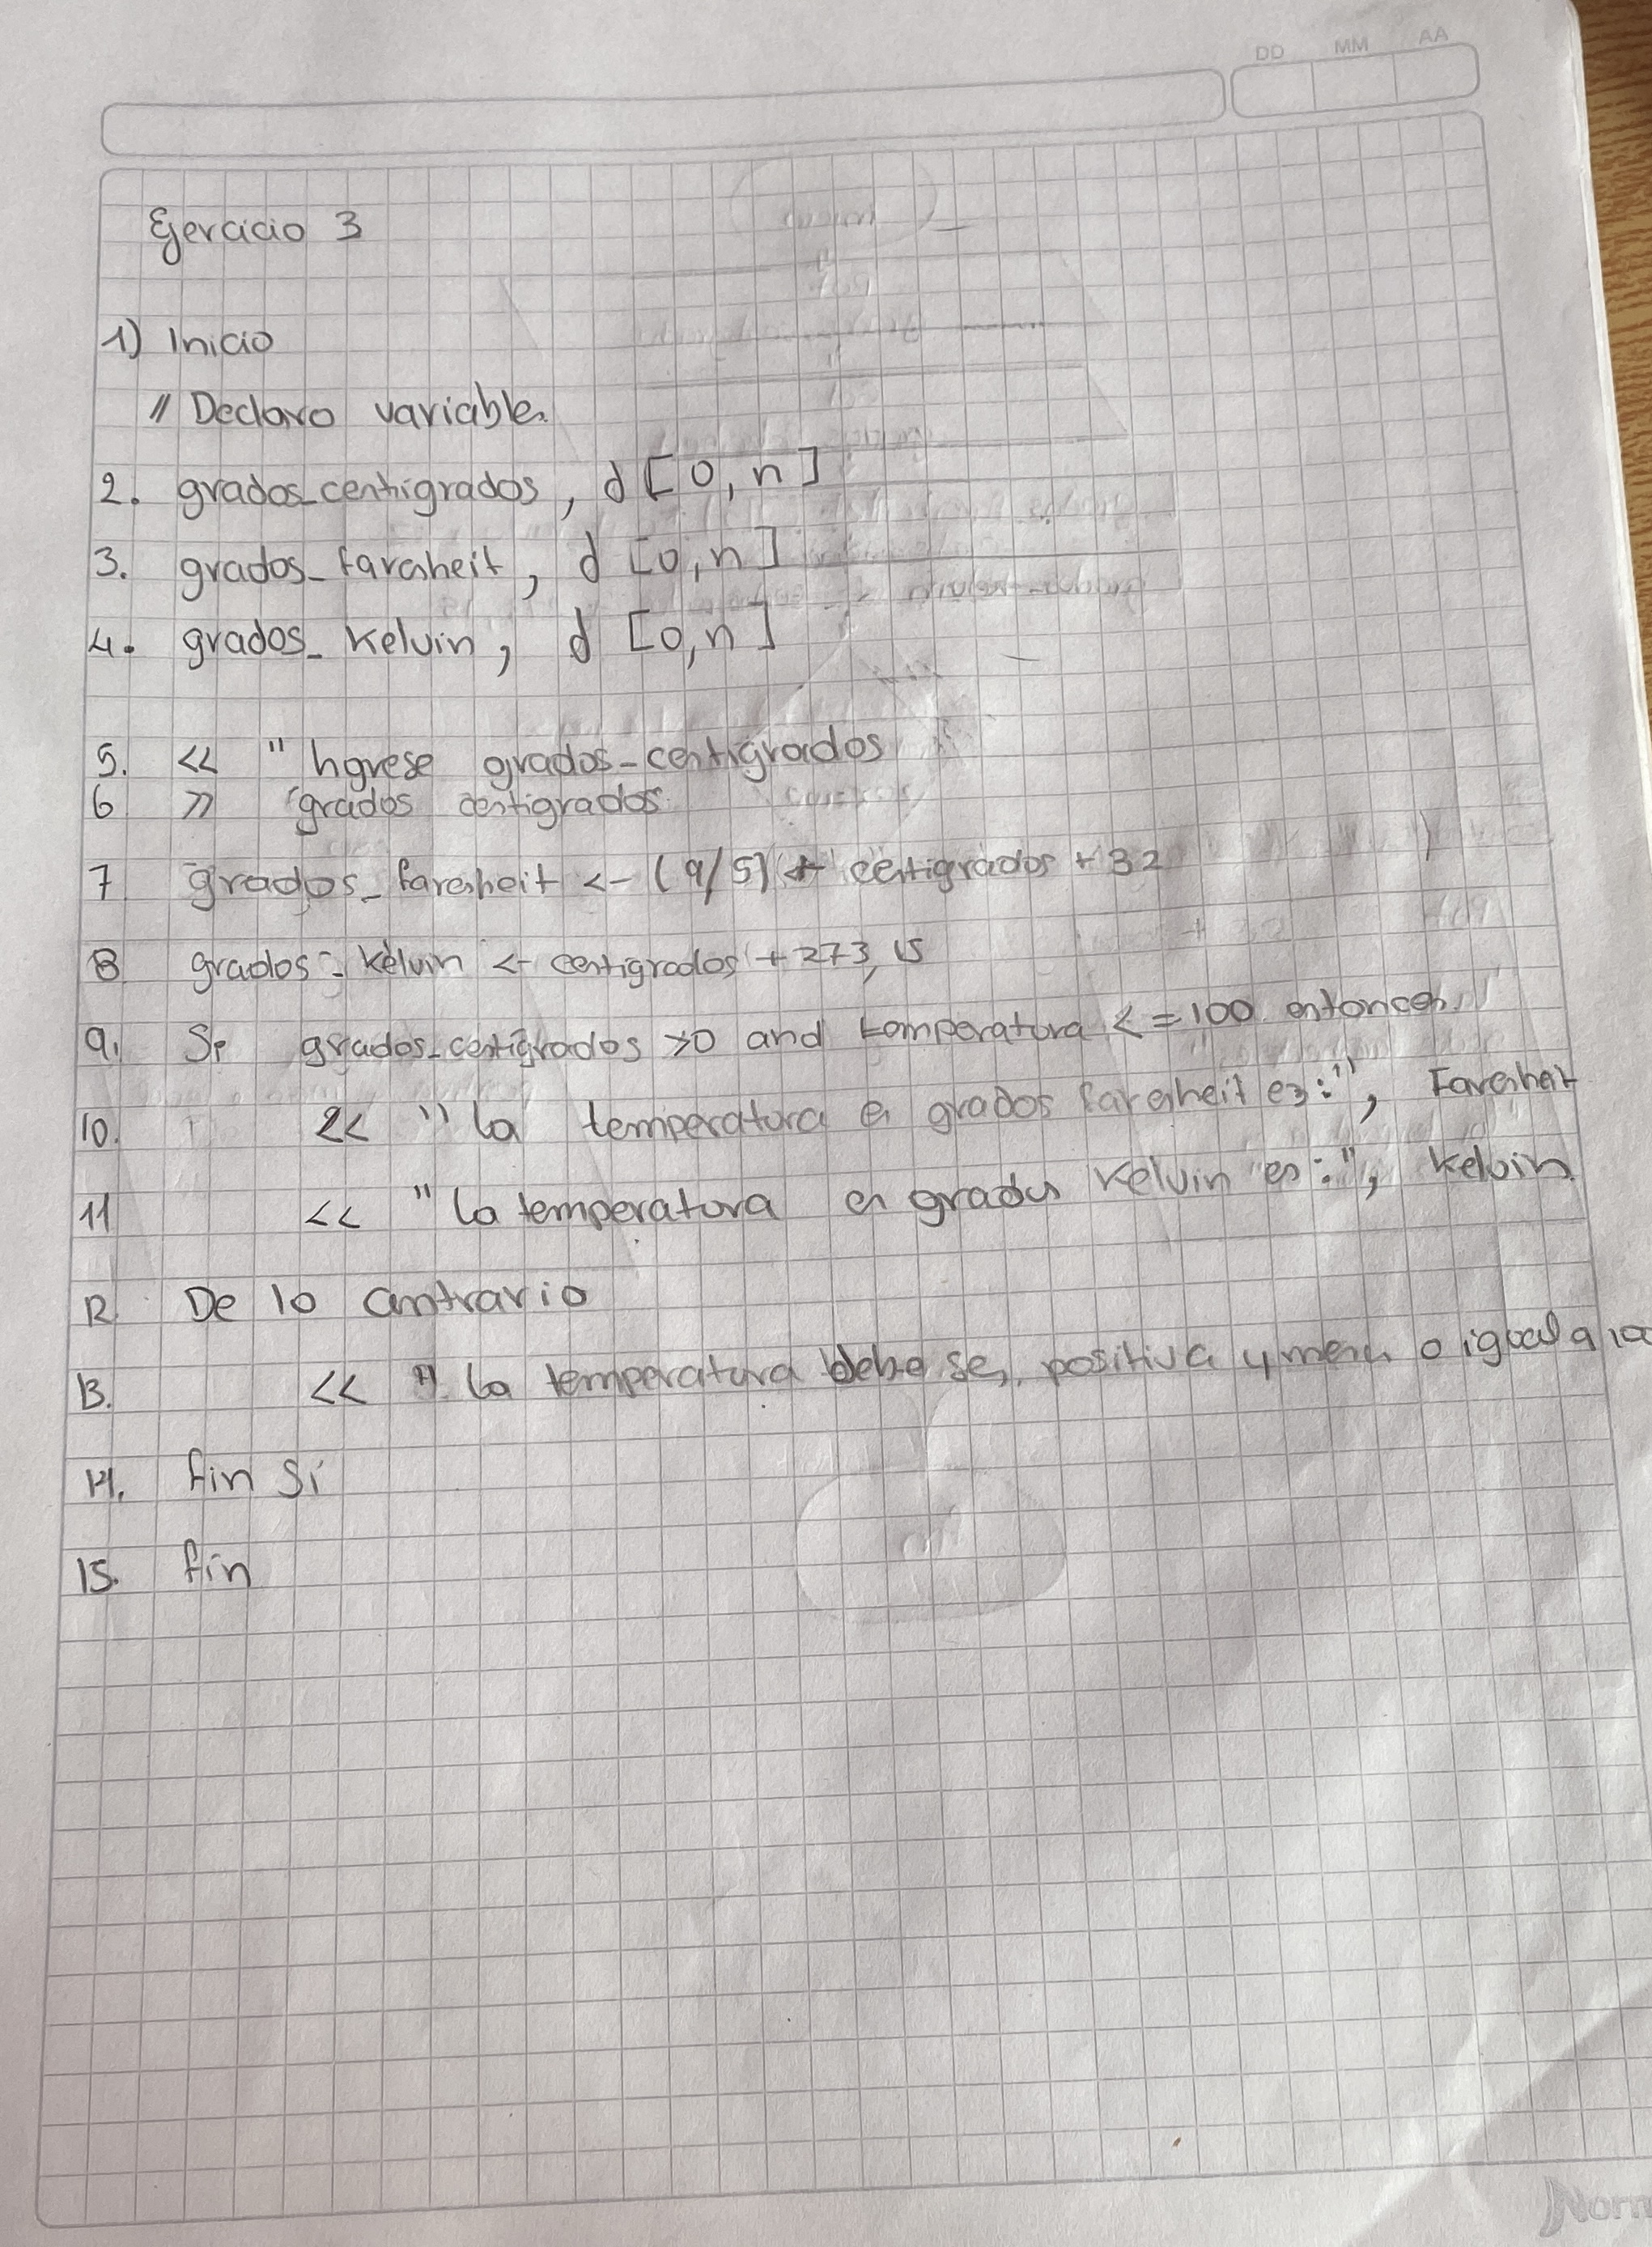 DD MM AA
Ejercicio 3
1) Inicio
// Declaro variables
2. grados_centigrados, d [0, n]
3. grados_faraheit, d [0, n]
4. grados_kelvin, d [0, n]
5. << "Ingrese grados_centigrados
6 >> grados centigrados
7 grados_fareheit <- (9/5) * centigrados + 32
8 grados_kelvin <- centigrados + 273,15
9. Si grados_centigrados >0 and temperatura <= 100 entonces
10. << "la temperatura en grados fareheit es:", Fareheit
11 << "La temperatura en grados Kelvin es:", kelvin
12. De lo contrario
13. << "la temperatura debe ser positiva y menor o igual a
14. fin si
15. fin
Norm